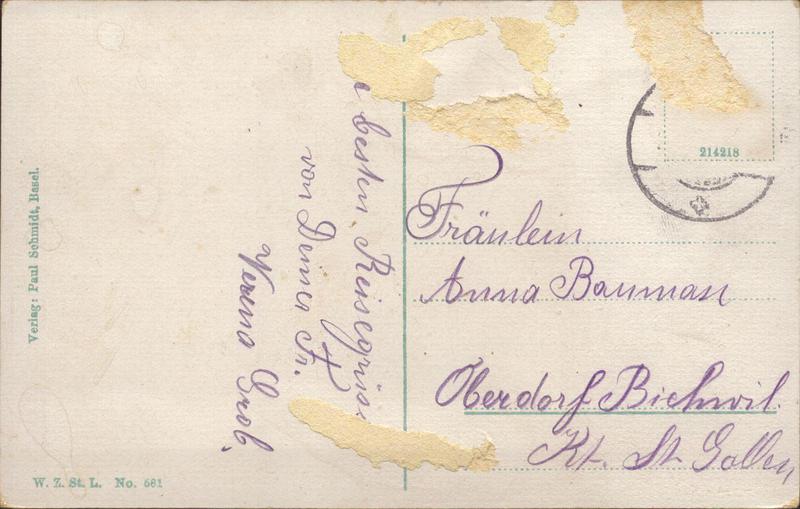 besten Reisegrüsse
von Deiner Fr.
Verena Grob.
Fräulein
Anna Bauman
Oberdorf Bichwil.
Kt. St. Gallen
214218
Verlag: Paul Schmidt, Basel.
W. Z. St. L. No. 681